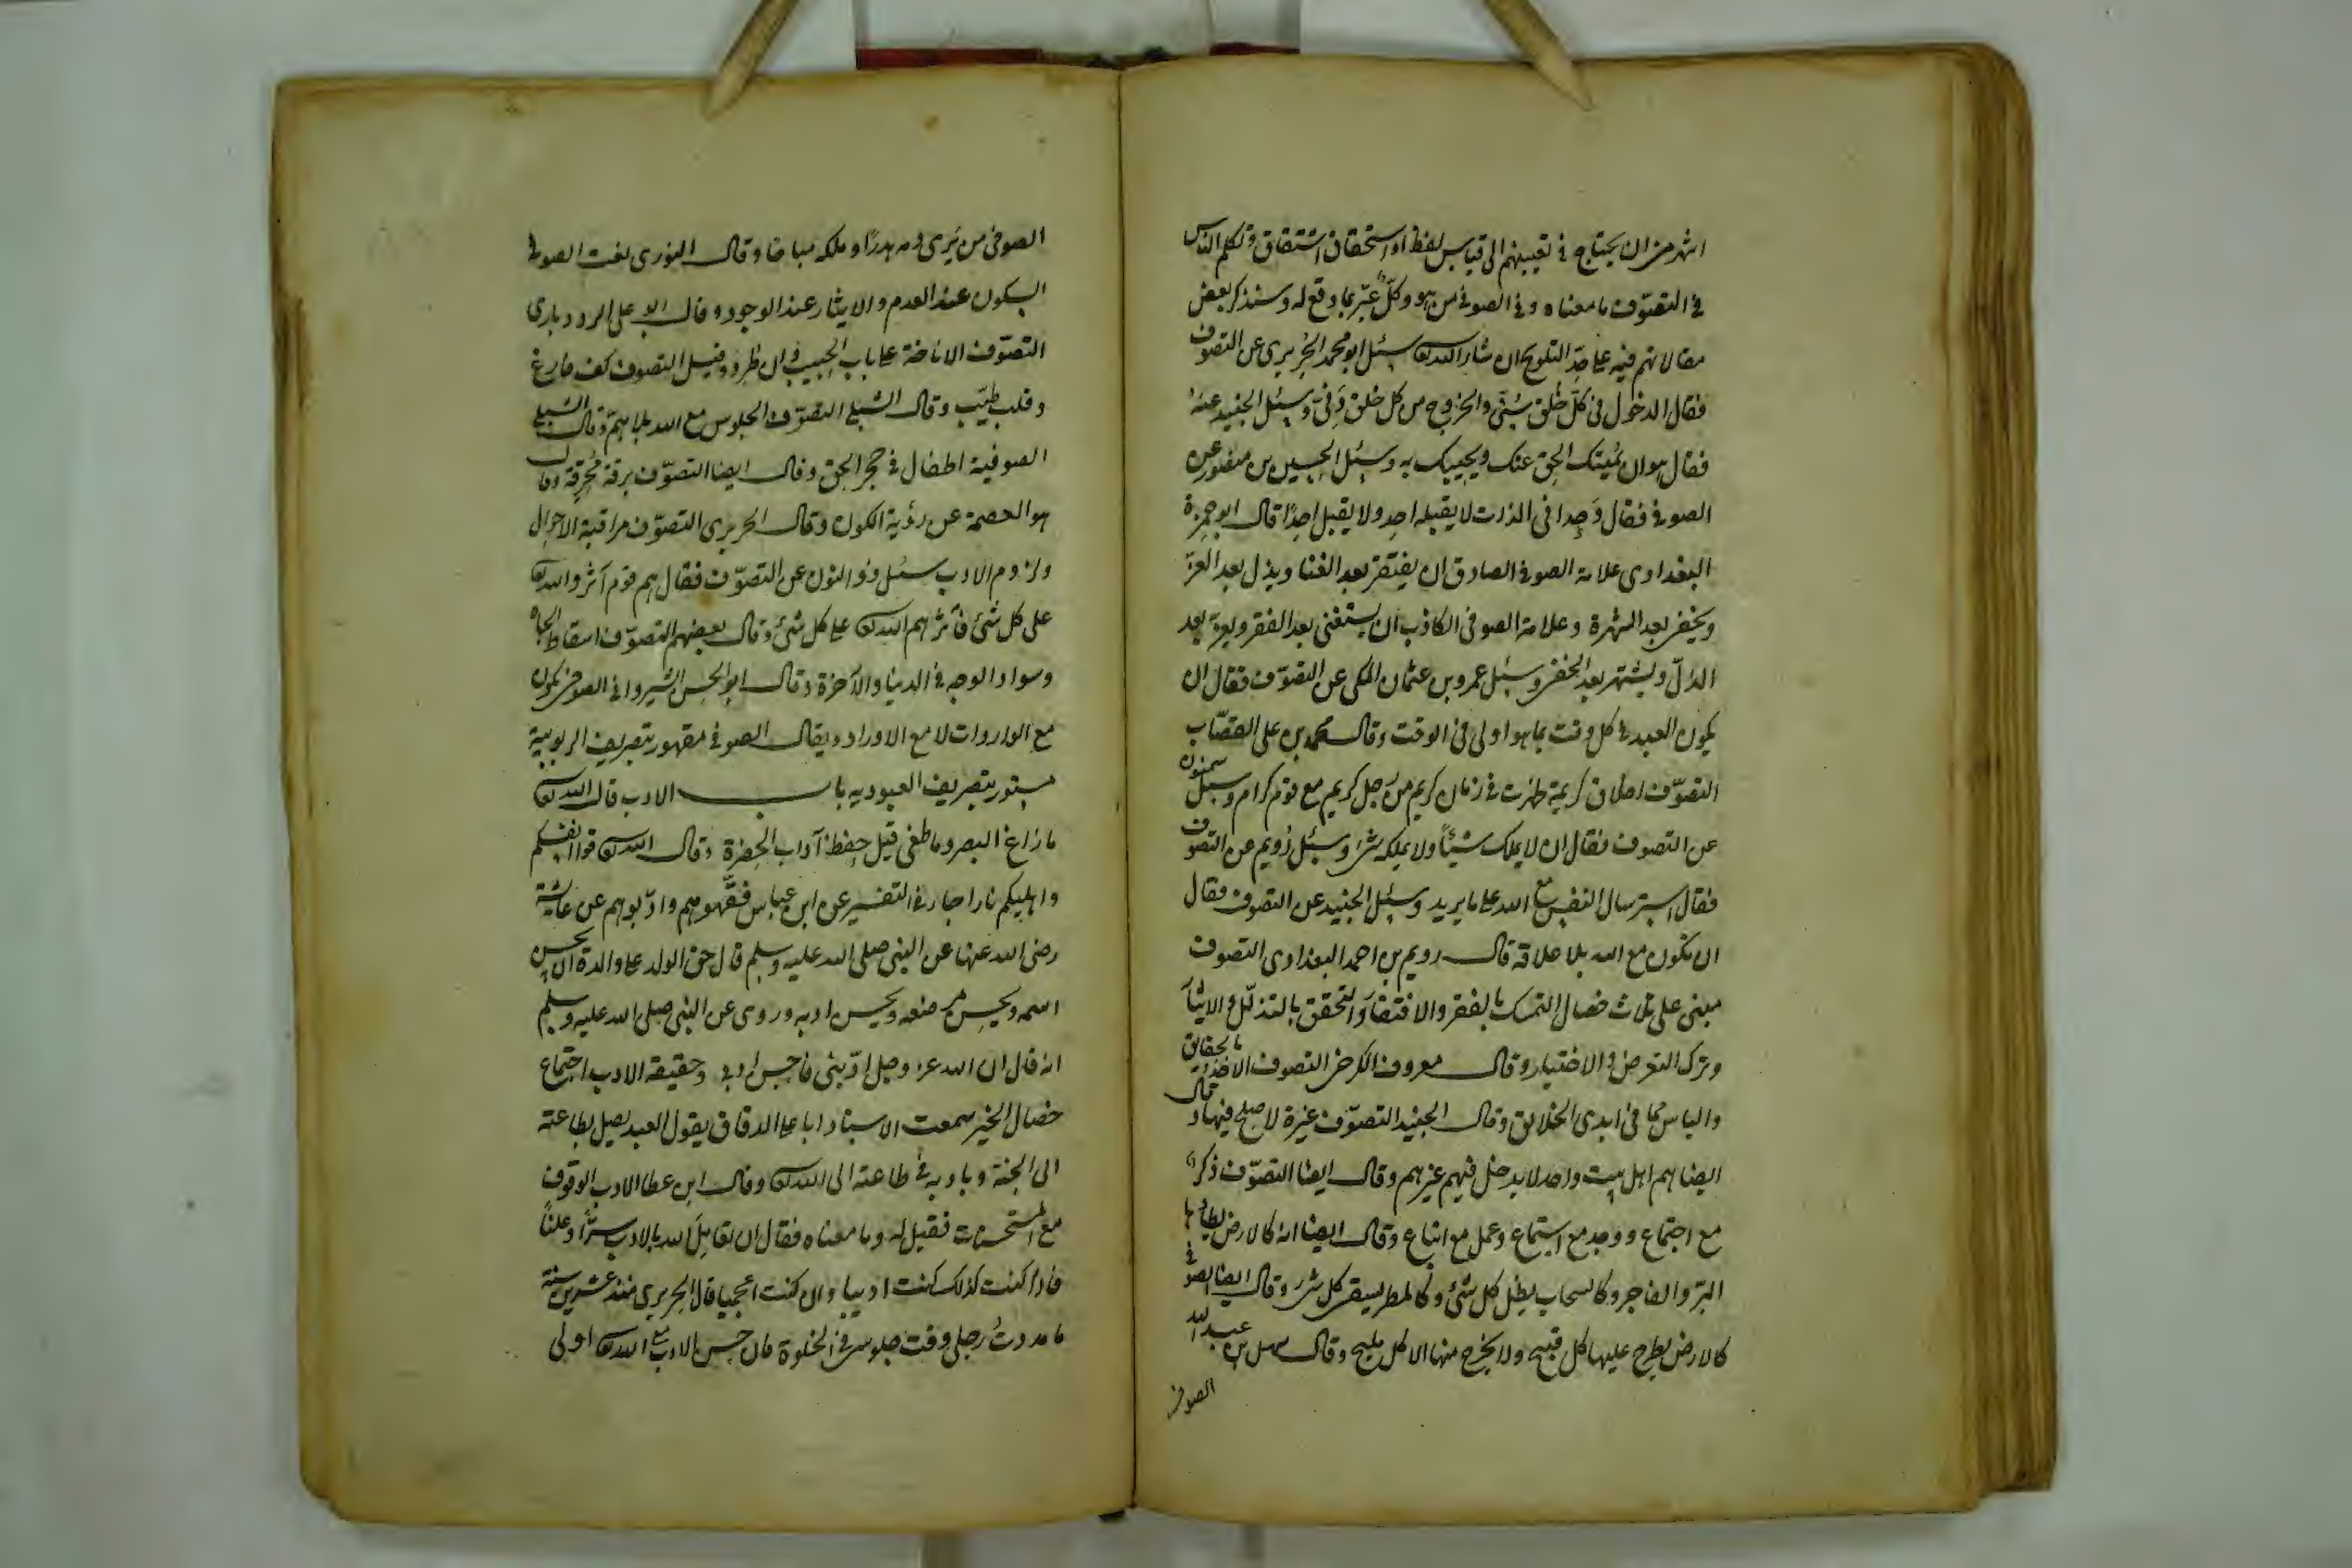 اشهر من ان يحتاج فى تعيينهم الى قياس لفظ او استحقاق اشتقاق وتكلم الناس
فى التصوّف ما معناه وفى الصوفى من هو وكلّ عبّر بما وقع له وسنذكر بعض
مقالاتهم فيه على حدّ التلويح ان شاء الله تعا سئل ابو محمد الجريرى عن التصوف
فقال الدخول فى كلّ خلق سُنّى والخروج من كل خلق دَنّى وسئل الجنيد عنه
فقال هو ان يُميتك الحق عنك ويحييك به وسئل الحسين بن منصور عن
الصوفى فقال وَحِدانى الذات لا يقبله احد ولا يقبل احدًا قال ابو حمزة
البغدادى علامة الصوفى الصادق ان يفتقر بعد الغنا ويذل بعد العزّ
ويخفى بعد الشهرة وعلامة الصوفى الكاذب ان يستغنى بعد الفقر ويعزّ بعد
الذلّ ويشتهر بعد الخفى وسئل عمرو بن عثمان المكى عن التصوّف فقال ان
يكون العبد فى كل وقت بما هو اولى فى الوقت وقال محمد بن على القصّاب
التصوّف اخلاق كريمة ظهرت فى زمان كريم من رجل كريم مع قوم كرام وسئل سمنون
عن التصوف فقال ان لا يملك شيئًا ولا يملكه شئ وسئل رُويم عن التصوف
فقال استرسال النفس مع الله على ما يريد وسئل الجنيد عن التصوف فقال
ان تكون مع الله بلا علاقة قال رويم بن احمد البغدادى التصوف
مبنى على ثلاث خصال التمسك بالفقر والافتقار والتحقق بالتذلّل والايثار
وترك التعرض والاختيار وقال معروف الكرخى التصوف الاخذ بالحقايق
والياس مما فى ايدى الخلايق وقال الجنيد التصوّف عنوة لا صلح فيها وقال
ايضا هم اهل بيت واحد لا يدخل فيهم غيرهم وقال ايضا التصوّف ذكر
مع اجتماع ووجد مع استماع وعمل مع اتباع وقال ايضا انه كالارض يطاؤها
البرّ والفاجر وكالسحاب يظل كل شئ وكالمطر يسقى كل شئ وقال ايضا الصوفى
كالارض يطرح عليها كل قبيح ولا يخرج منها الا كل مليح وقال سهل بن عبد الله
الصوفى
الصوفى من يَرى دمه هدرًا وملكه مباحًا وقال النورى نعت الصوفى
السكون عند العدم والايثار عند الوجود وقال ابو على الرودبارى
التصوّف الاناخة على باب الحبيب وان طُرد وقيل التصوف كف فارغ
وقلب طيّب وقال الشبلى التصوّف الجلوس مع الله بلا همّ وقال الشبلى
الصوفية اطفال فى حجر الحق وقال ايضا التصوّف برقة مُحرِقة وقال
هو العصمة عن رؤية الكون وقال الجريرى التصوّف مراقبة الاحوال
ولزوم الادب سئل ذو النون عن التصوّف فقال هم قوم آثروا الله تعا
على كل شئ فآثرهم الله تعا على كل شئ وقال بعضهم التصوّف اسقاط الجاه
وسواد الوجه فى الدنيا والآخرة وقال ابو الحسن السيروانى الصوفى يكون
مع الواردات لا مع الاوراد ويقال الصوفى مقهور بتصريف الربوبية
مستور بتصريف العبوديه باب الادب قال الله تعا
ما زاغ البصر وما طغى قيل حفظ آداب الحضرة وقال الله تعا قوا انفسكم
واهليكم نارا جاء فى التفسير عن ابن عباس فقّهوهم وادّبوهم عن عائشة
رضى الله عنها عن النبى صلى الله عليه وسلم قال حق الولد على والده ان يحسن
اسمه ويحسن مرضعه ويحسن ادبه وروى عن النبى صلى الله عليه وسلم
انه قال ان الله عز وجل ادّبنى فاحسن ادبى وحقيقة الادب اجتماع
خصال الخير سمعت الاستاد ابا على الدقاق يقول العبد يصل بطاعته
الى الجنة وبادبه فى طاعته الى الله تعا وقال ابن عطا الادب الوقوف
مع المستحسنات فقيل له وما معناه فقال ان تعامل الله بالادب سرًّا وعلنًا
فاذا كنت كذلك كنت اديبا وان كنت اعجميا قال الجريرى منذ عشرين سنة
ما مددتُ رجلى وقت جلوسى فى الخلوة فان حسن الادب مع الله تعا اولى